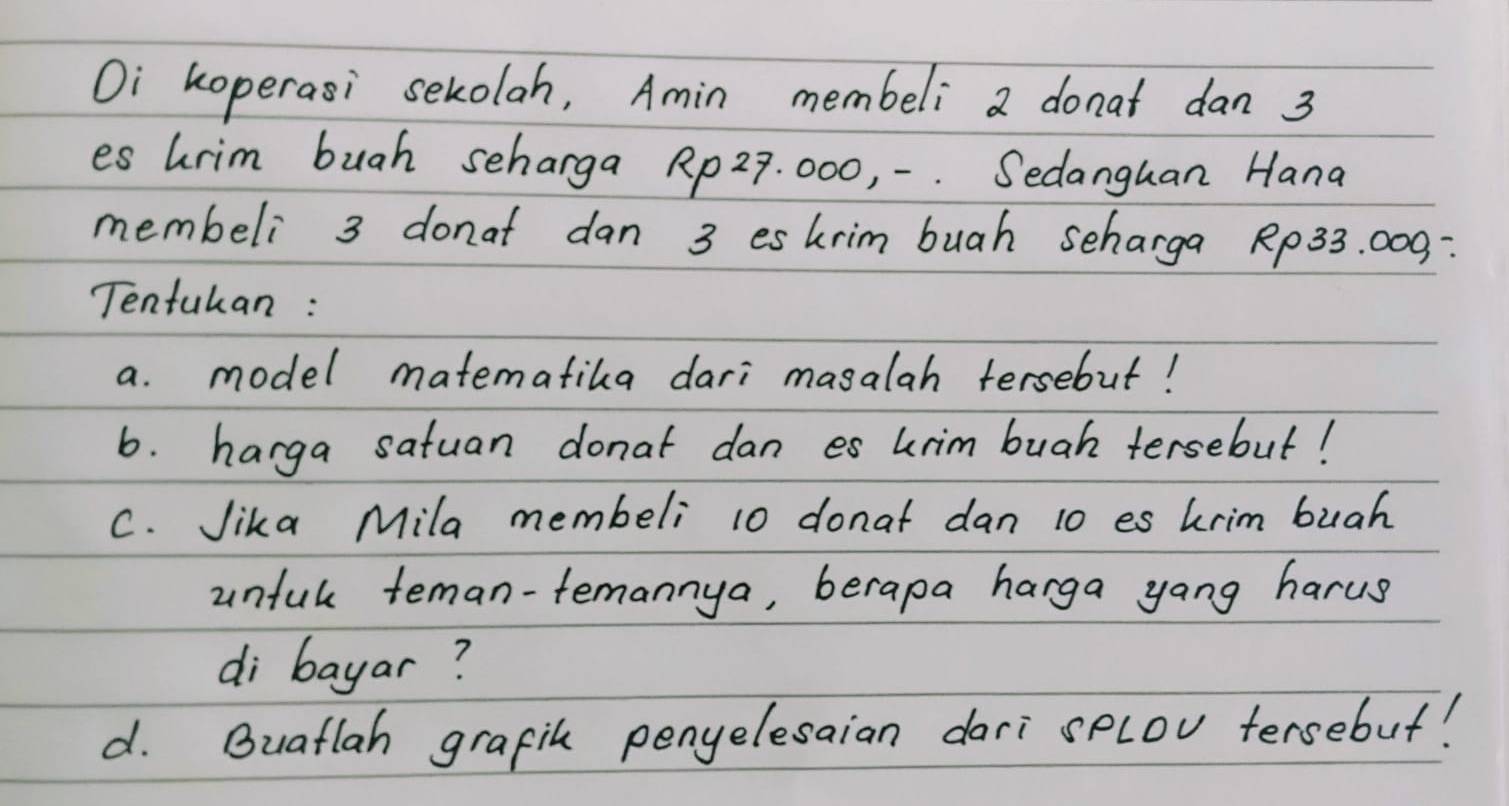 Di koperasi sekolah, Amin membeli 2 donat dan 3
es krim buah seharga Rp27.000,-. Sedangkan Hana
membeli 3 donat dan 3 es krim buah seharga Rp33.000,-.
Tentukan :
a. model matematika dari masalah tersebut!
b. harga satuan donat dan es krim buah tersebut!
c. Jika Mila membeli 10 donat dan 10 es krim buah
untuk teman-temannya, berapa harga yang harus
di bayar ?
d. Buatlah grafik penyelesaian dari SPLDV tersebut!